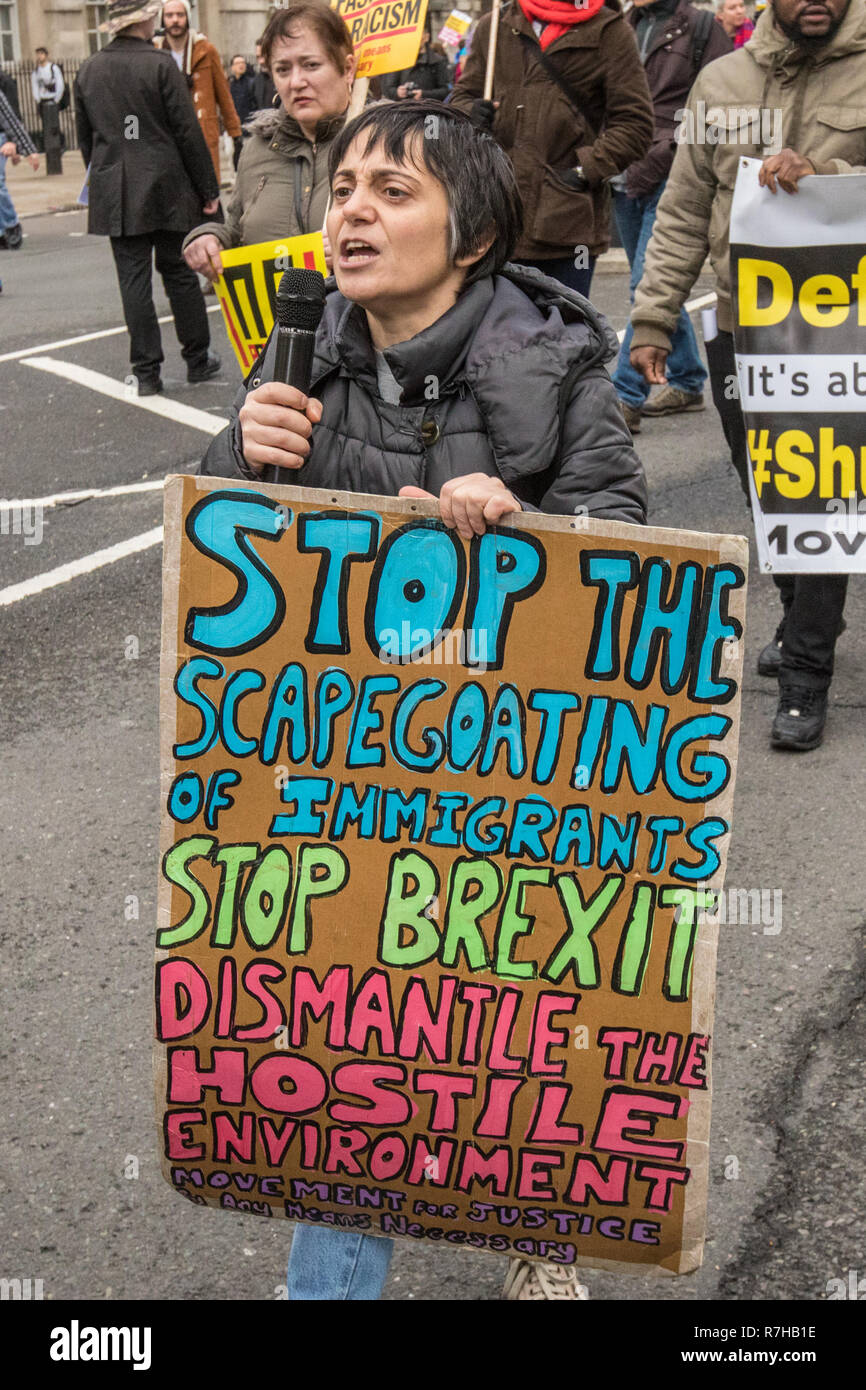 RACISM
means
STOP THE
SCAPEGOATING
OF IMMIGRANTS
STOP BREXIT
DISMANTLE THE
HOSTILE
ENVIRONMENT
MOVEMENT FOR JUSTICE
By Any Means Necessary
Def
It's ab
#Shu
Mov
alamy
Image ID: R7HB1E
www.alamy.com